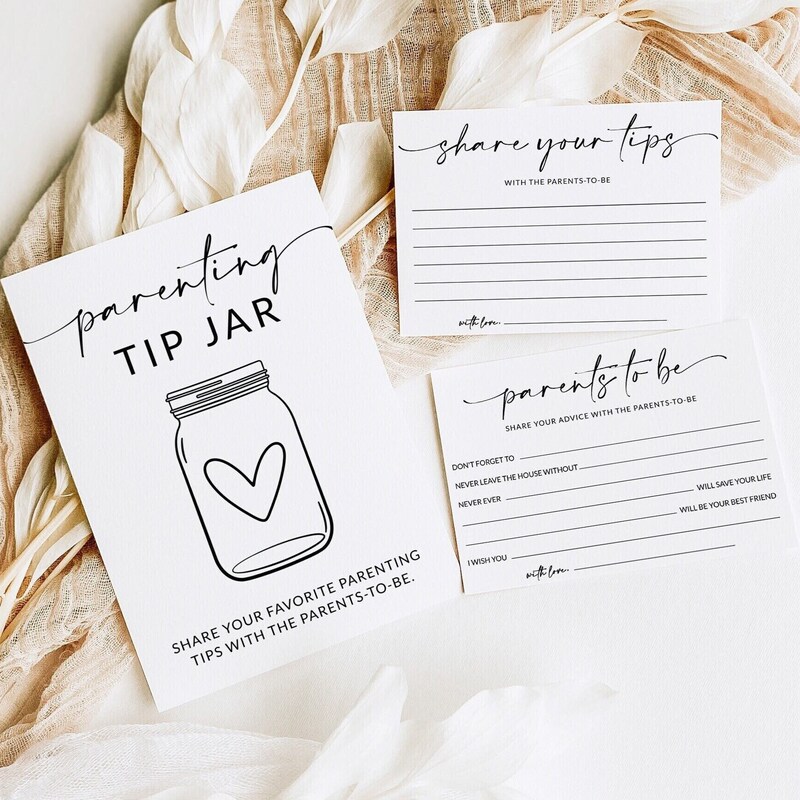 parenting
TIP JAR
SHARE YOUR FAVORITE PARENTING
TIPS WITH THE PARENTS-TO-BE.
share your tips
WITH THE PARENTS-TO-BE
with love..
parents to be
SHARE YOUR ADVICE WITH THE PARENTS-TO-BE
DON'T FORGET TO
NEVER LEAVE THE HOUSE WITHOUT
NEVER EVER
WILL SAVE YOUR LIFE
WILL BE YOUR BEST FRIEND
I WISH YOU
with love..